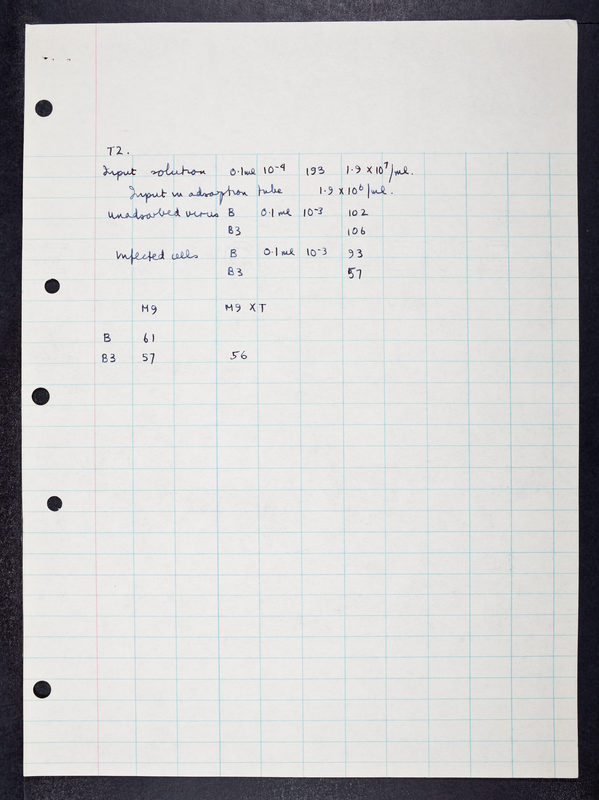 T2.
Input solution 0.1ml 10⁻⁴ 193 1.9 × 10⁷/ml.
Input in adsorption tube 1.9 × 10⁶/ml.
Unadsorbed virus B 0.1 ml 10⁻³ 102
B3 106
Infected cells B 0.1 ml 10⁻³ 93
B3 57
M9 M9 XT
B 61
B3 57 56